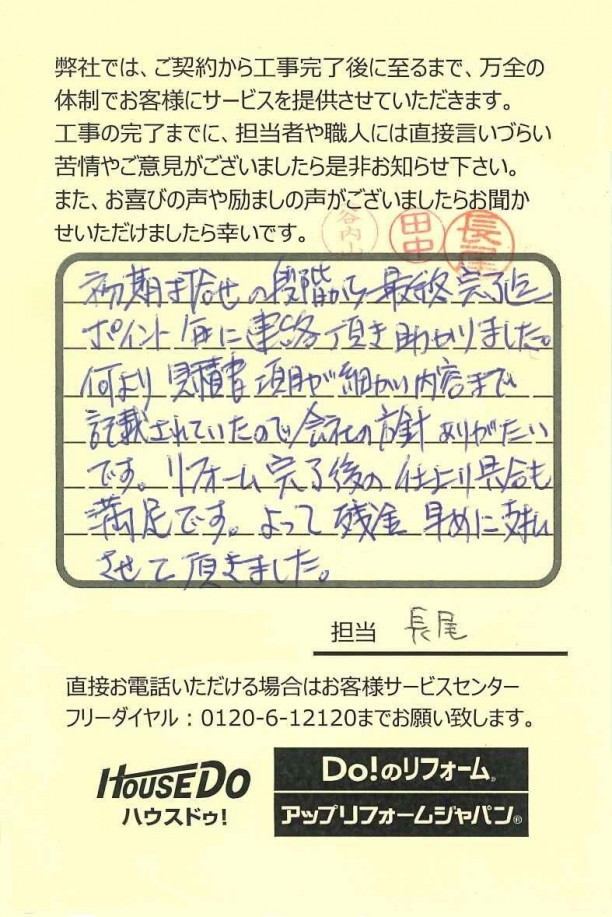 弊社では、ご契約から工事完了後に至るまで、万全の
体制でお客様にサービスを提供させていただきます。
工事の完了までに、担当者や職人には直接言いづらい
苦情やご意見がございましたら是非お知らせ下さい。
また、お喜びの声や励ましの声がございましたらお聞か
せいただけましたら幸いです。
谷内山 田中 長尾
初期打合せの段階から最終完了迄
ポイント毎に連絡頂き助かりました。
何より見積書項目が細かい内容まで
記載されていたので会社の方針ありがたい
です。リフォーム完了後の仕上り具合も
満足です。よって残金早めに支払
させて頂きました。
担当 長尾
直接お電話いただける場合はお客様サービスセンター
フリーダイヤル：0120-6-12120までお願い致します。
HOUSEDO
ハウスドゥ!
Do!のリフォーム®
アップリフォームジャパン®